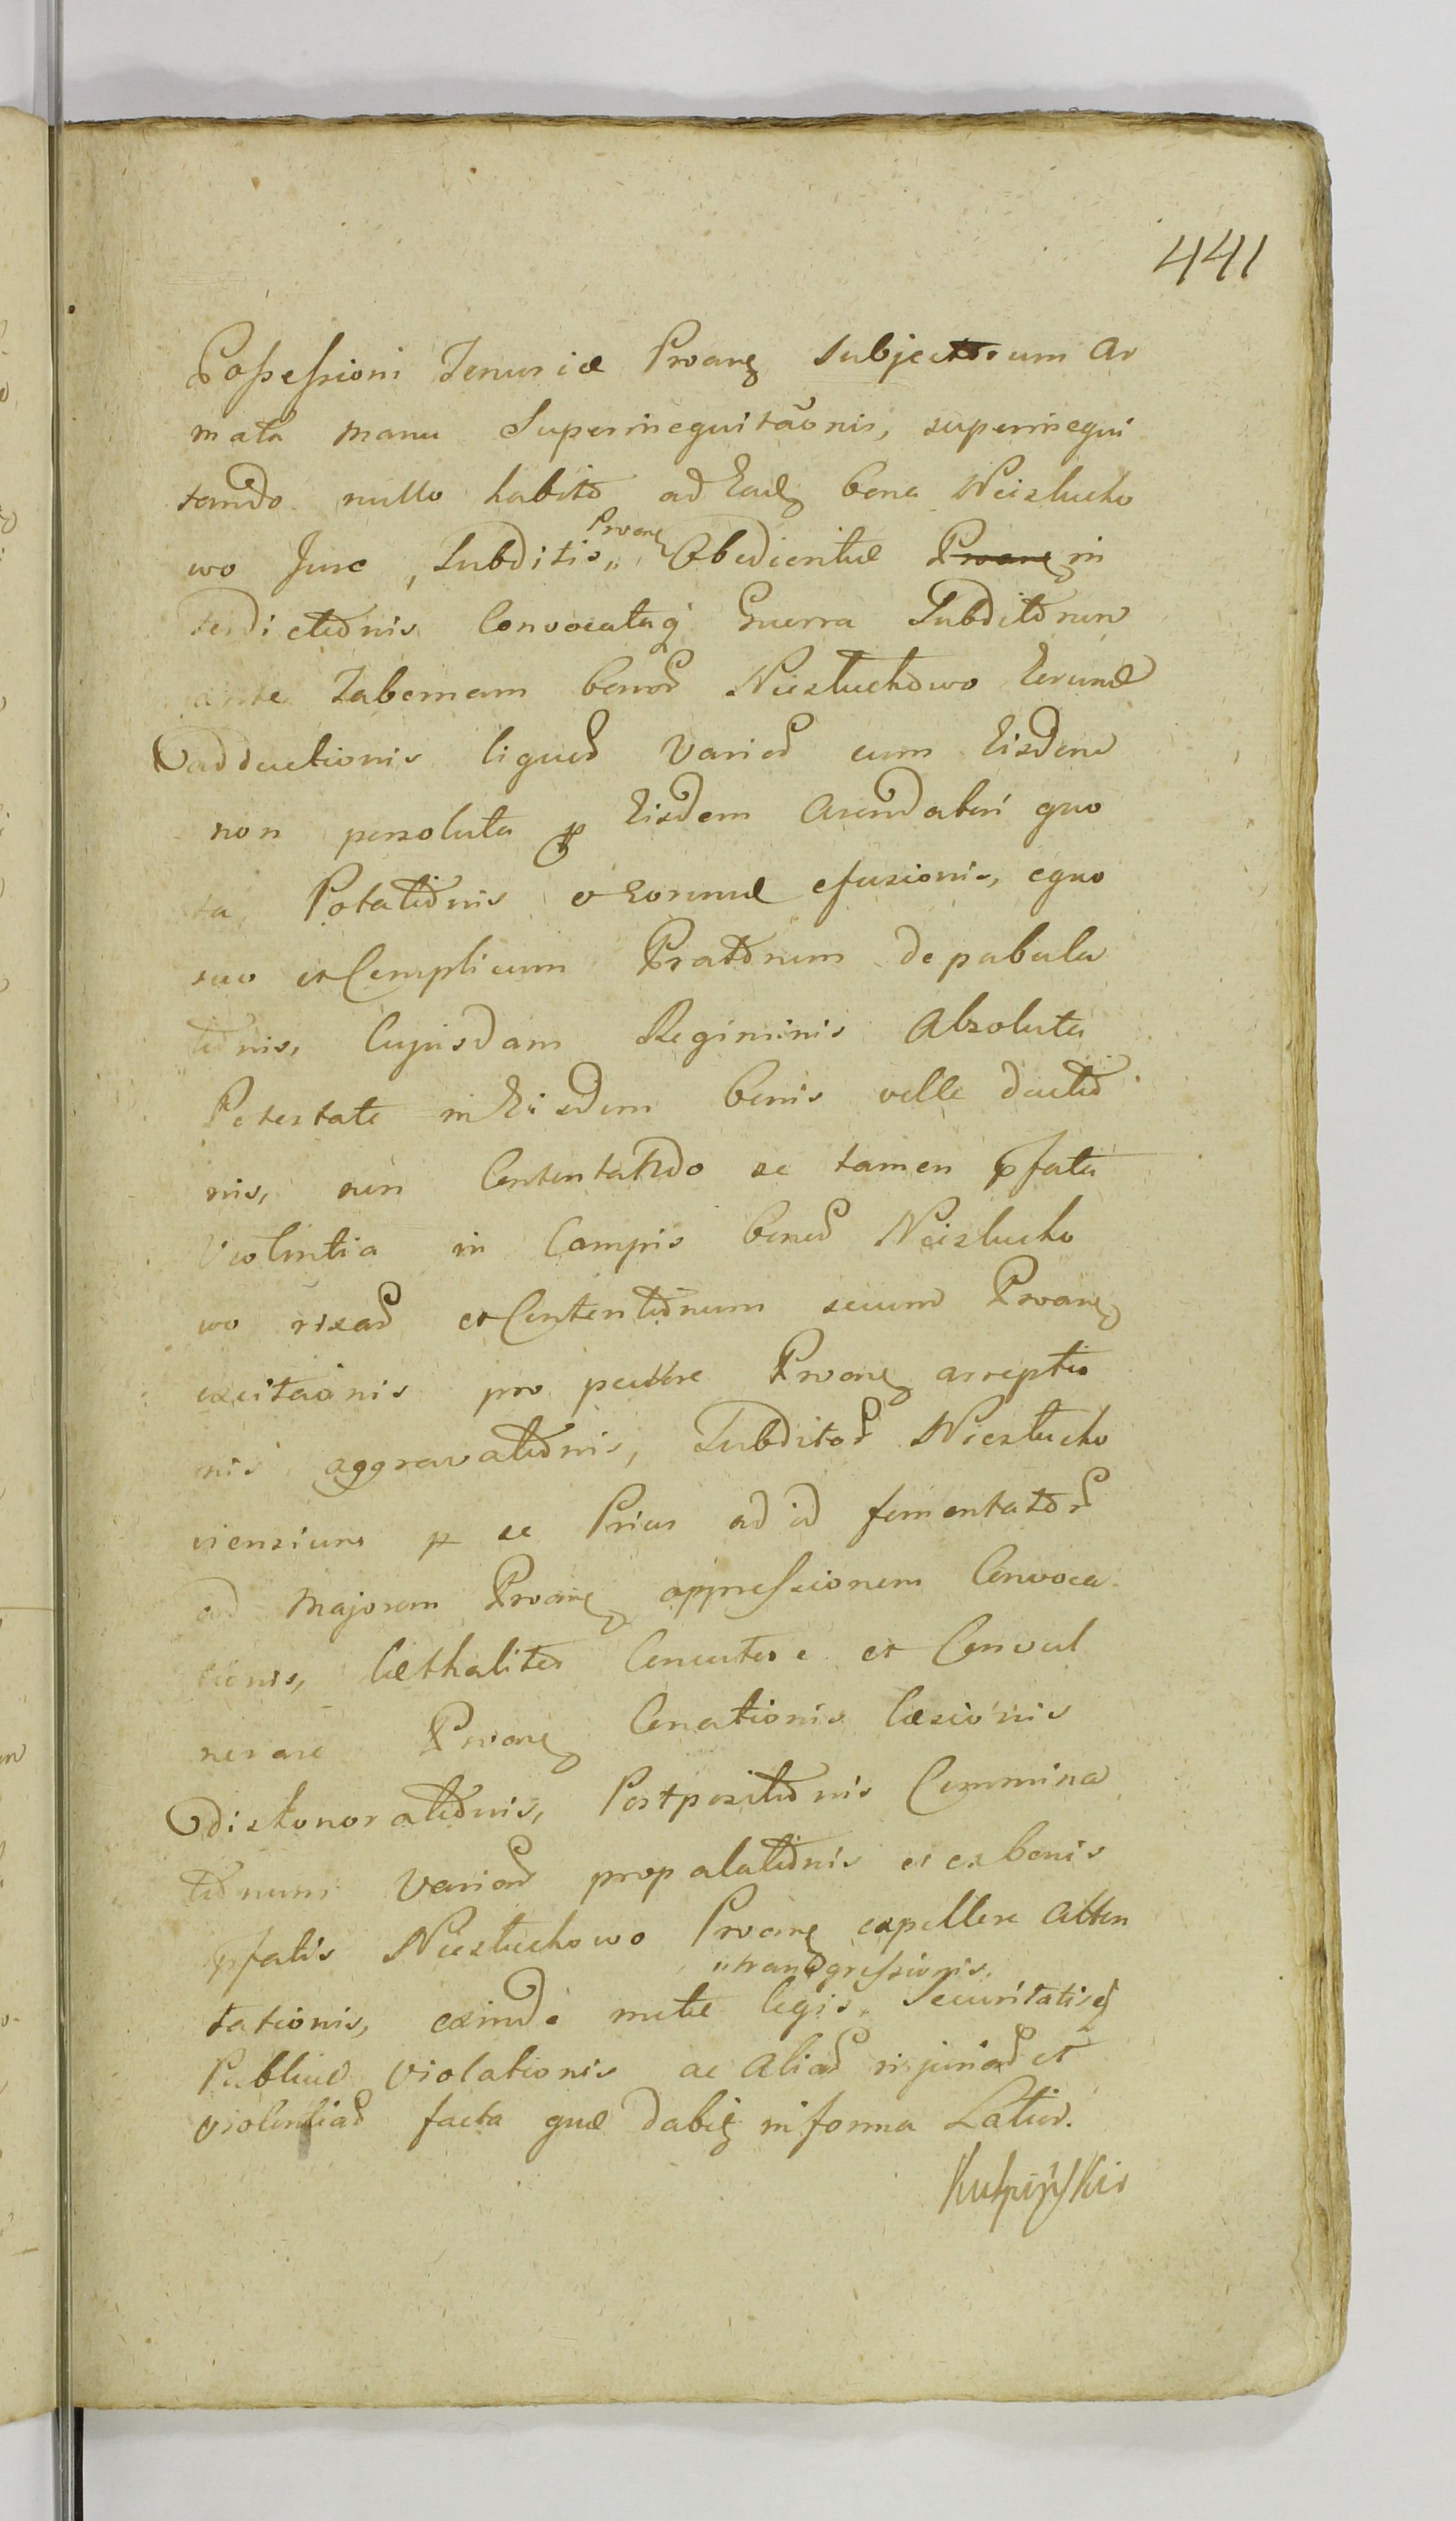 441
Possessioni Tenuriæ Proang subjectorum Ar
mata manu Superinequitaõnis, superinequi
tando nullo habito ad Eadg bona Nieslucho
wo Jure, Subditis „ Proang Obedientiæ Proang in
terdictionis Convocataq Guerra Subditorum
ante Tabernam bonor Niesłuchowo Eorund
adductionis liquor Varior cum Eisdem
non persoluta p Eisdem Arendatori quo
ta Potationis et Eorund efusionis, equo
suo et Complicum Pratorum depabula
tionis, Cujusdam Regiminis Absoluta
Potestate in Eisdem bonis velle ductio
nis, non Contentando se tamen pfata
Violentia in Campis bonor Nieslucho
wo rixar et Contentionum secum Proang
excitaõnis pro pectore Proang arreptio
nis aggravationis, Subditor Niesłucho
viensium p se Prius ad id fomentator
ad Majorem Proang oppressionem Convoca
tionis, læthaliter Concutere et Convul
nerare Proang Conationis læsionis
dishonorationis, Postpositionis Commina
tionum Variar propalationis et ex bonis
pfatis Niesłuchowo Proang expellere Atten
tationis, exinde metæ legis „transgressionis, Securitatisq
Publicæ Violationis ac Aliar injuriar et
violentiar facta quæ dabig in forma Latior.